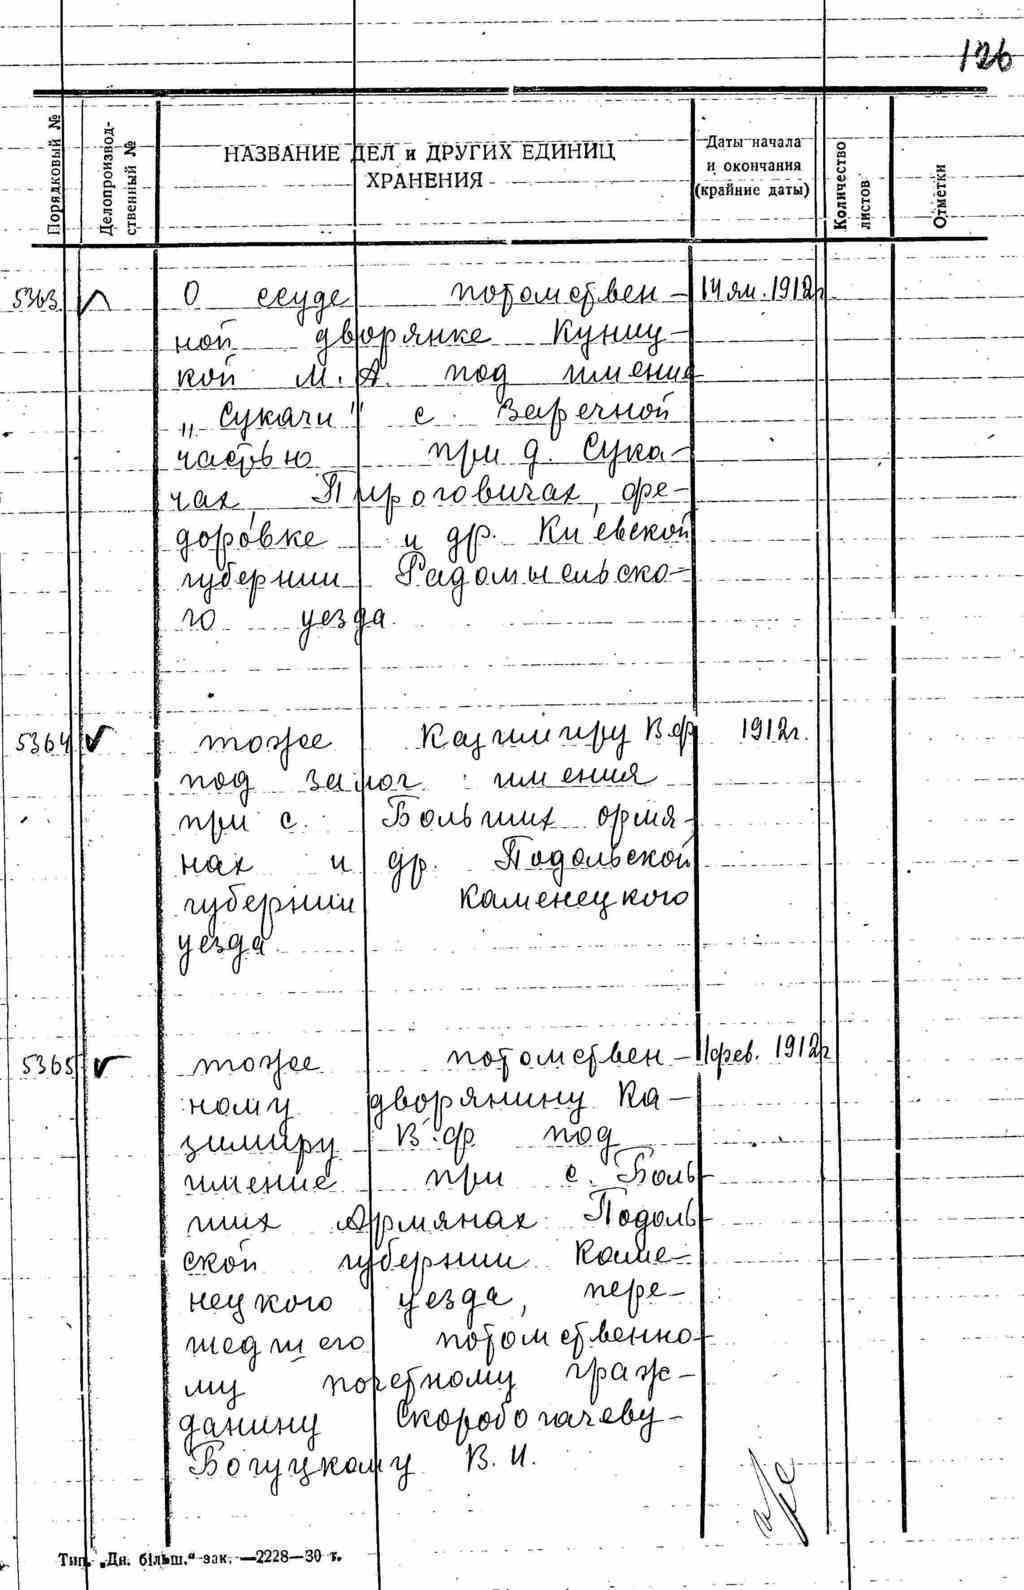 126
Порядковый №
Делопроизвод-
ственный №
НАЗВАНИЕ ДЕЛ и ДРУГИХ ЕДИНИЦ
ХРАНЕНИЯ
Даты начала
и окончания
(крайние даты)
Количество
листов
Отметки
5363 О ссуде потомствен- 14 ян. 1912г
ной дворянке Куниц-
кой М.А. под имение
„Сукачи" с заречной
частью при д. Сука-
чах, Пироговичах, Фе-
доровке и др. Киевской
губернии Радомысльско-
го уезда.
5364 тоже Казимиру В.Ф. 1912г.
под залог имения
при с. Больших Ормя-
нах и др. Подольской
губернии Каменецкого
уезда
5365 тоже потомствен- 1 фев. 1912г
ному дворянину Ка-
зимиру В.Ф. под
имение при с. Боль-
ших Армянах Подоль-
ской губернии Каме-
нецкого уезда, пере-
шедшего потомственно-
му почетному граж-
данину Скоробогачеву-
Богуцкому В. И.
Тип. „Дн. більш." зак. —2228—30 т.